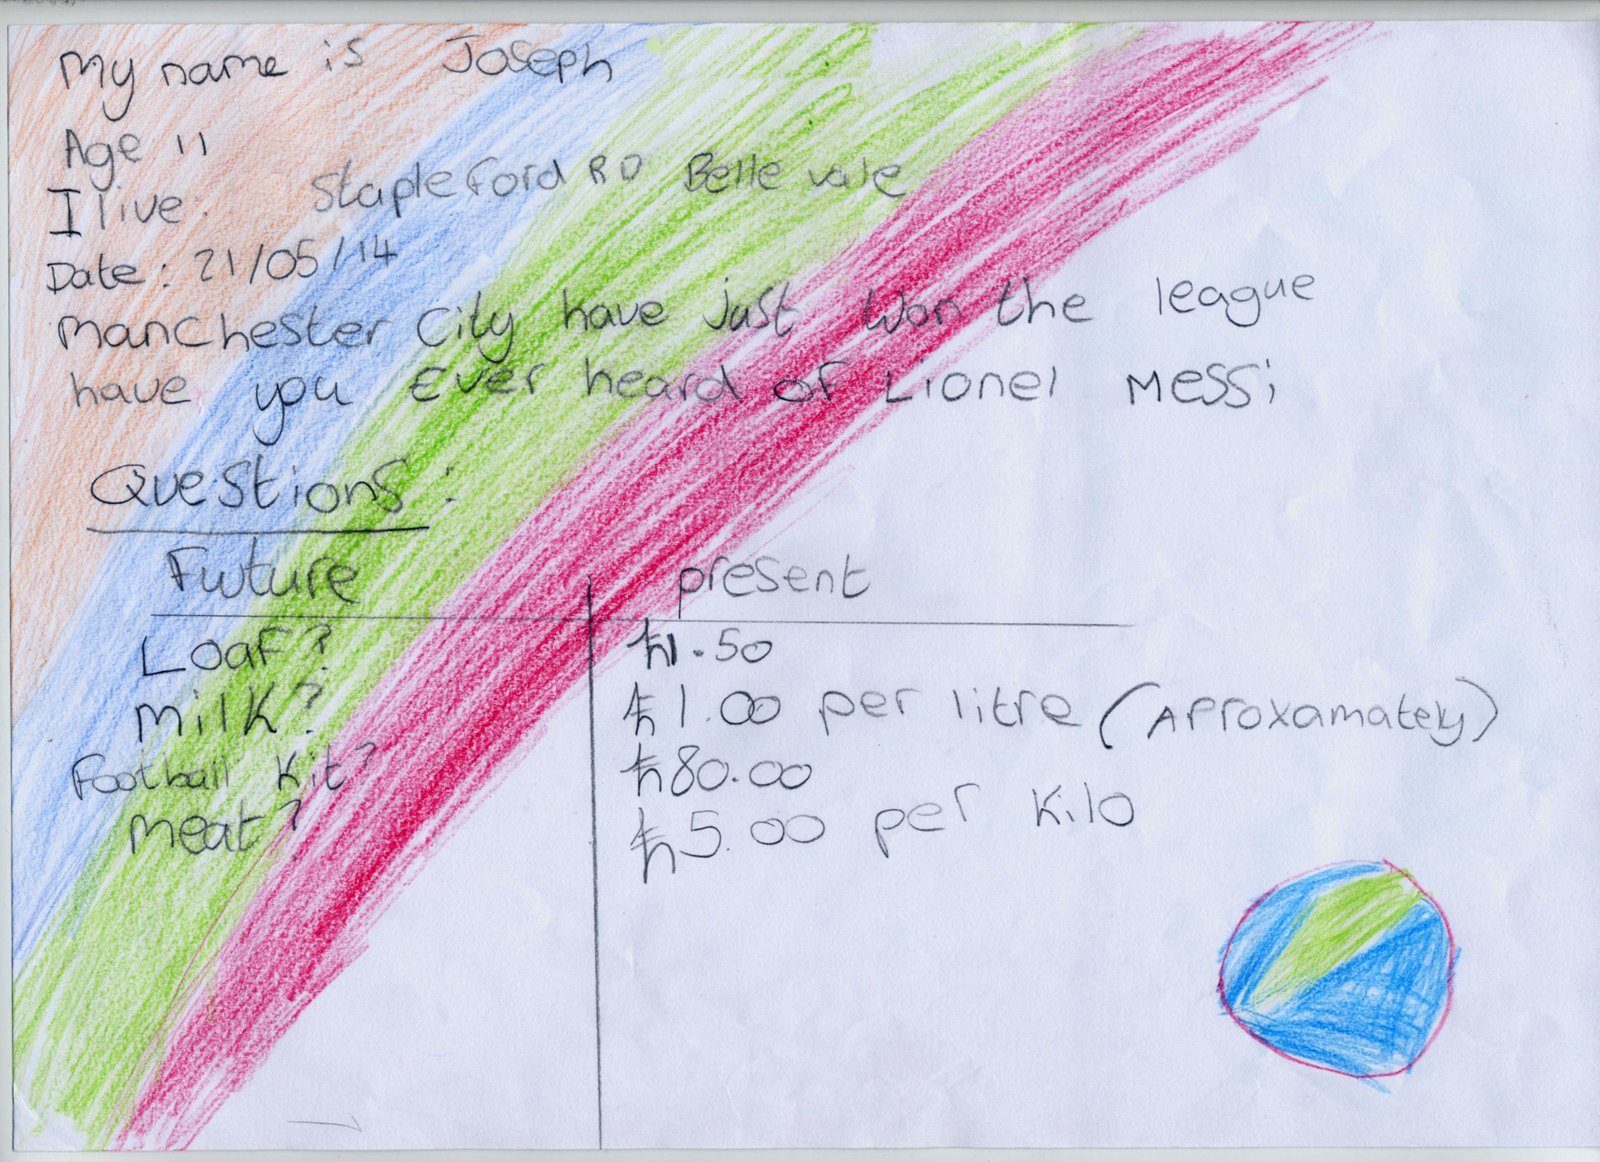 My name is Joseph
Age 11
I live: Stapleford RD Belle vale
Date: 21/05/14
Manchester City have just won the league
have you Ever heard of Lionel Messi
Questions:
Future present
Loaf? £1.50
Milk? £1.00 per litre (Aproxamately)
Football Kit? £80.00
Meat? £5.00 per Kilo